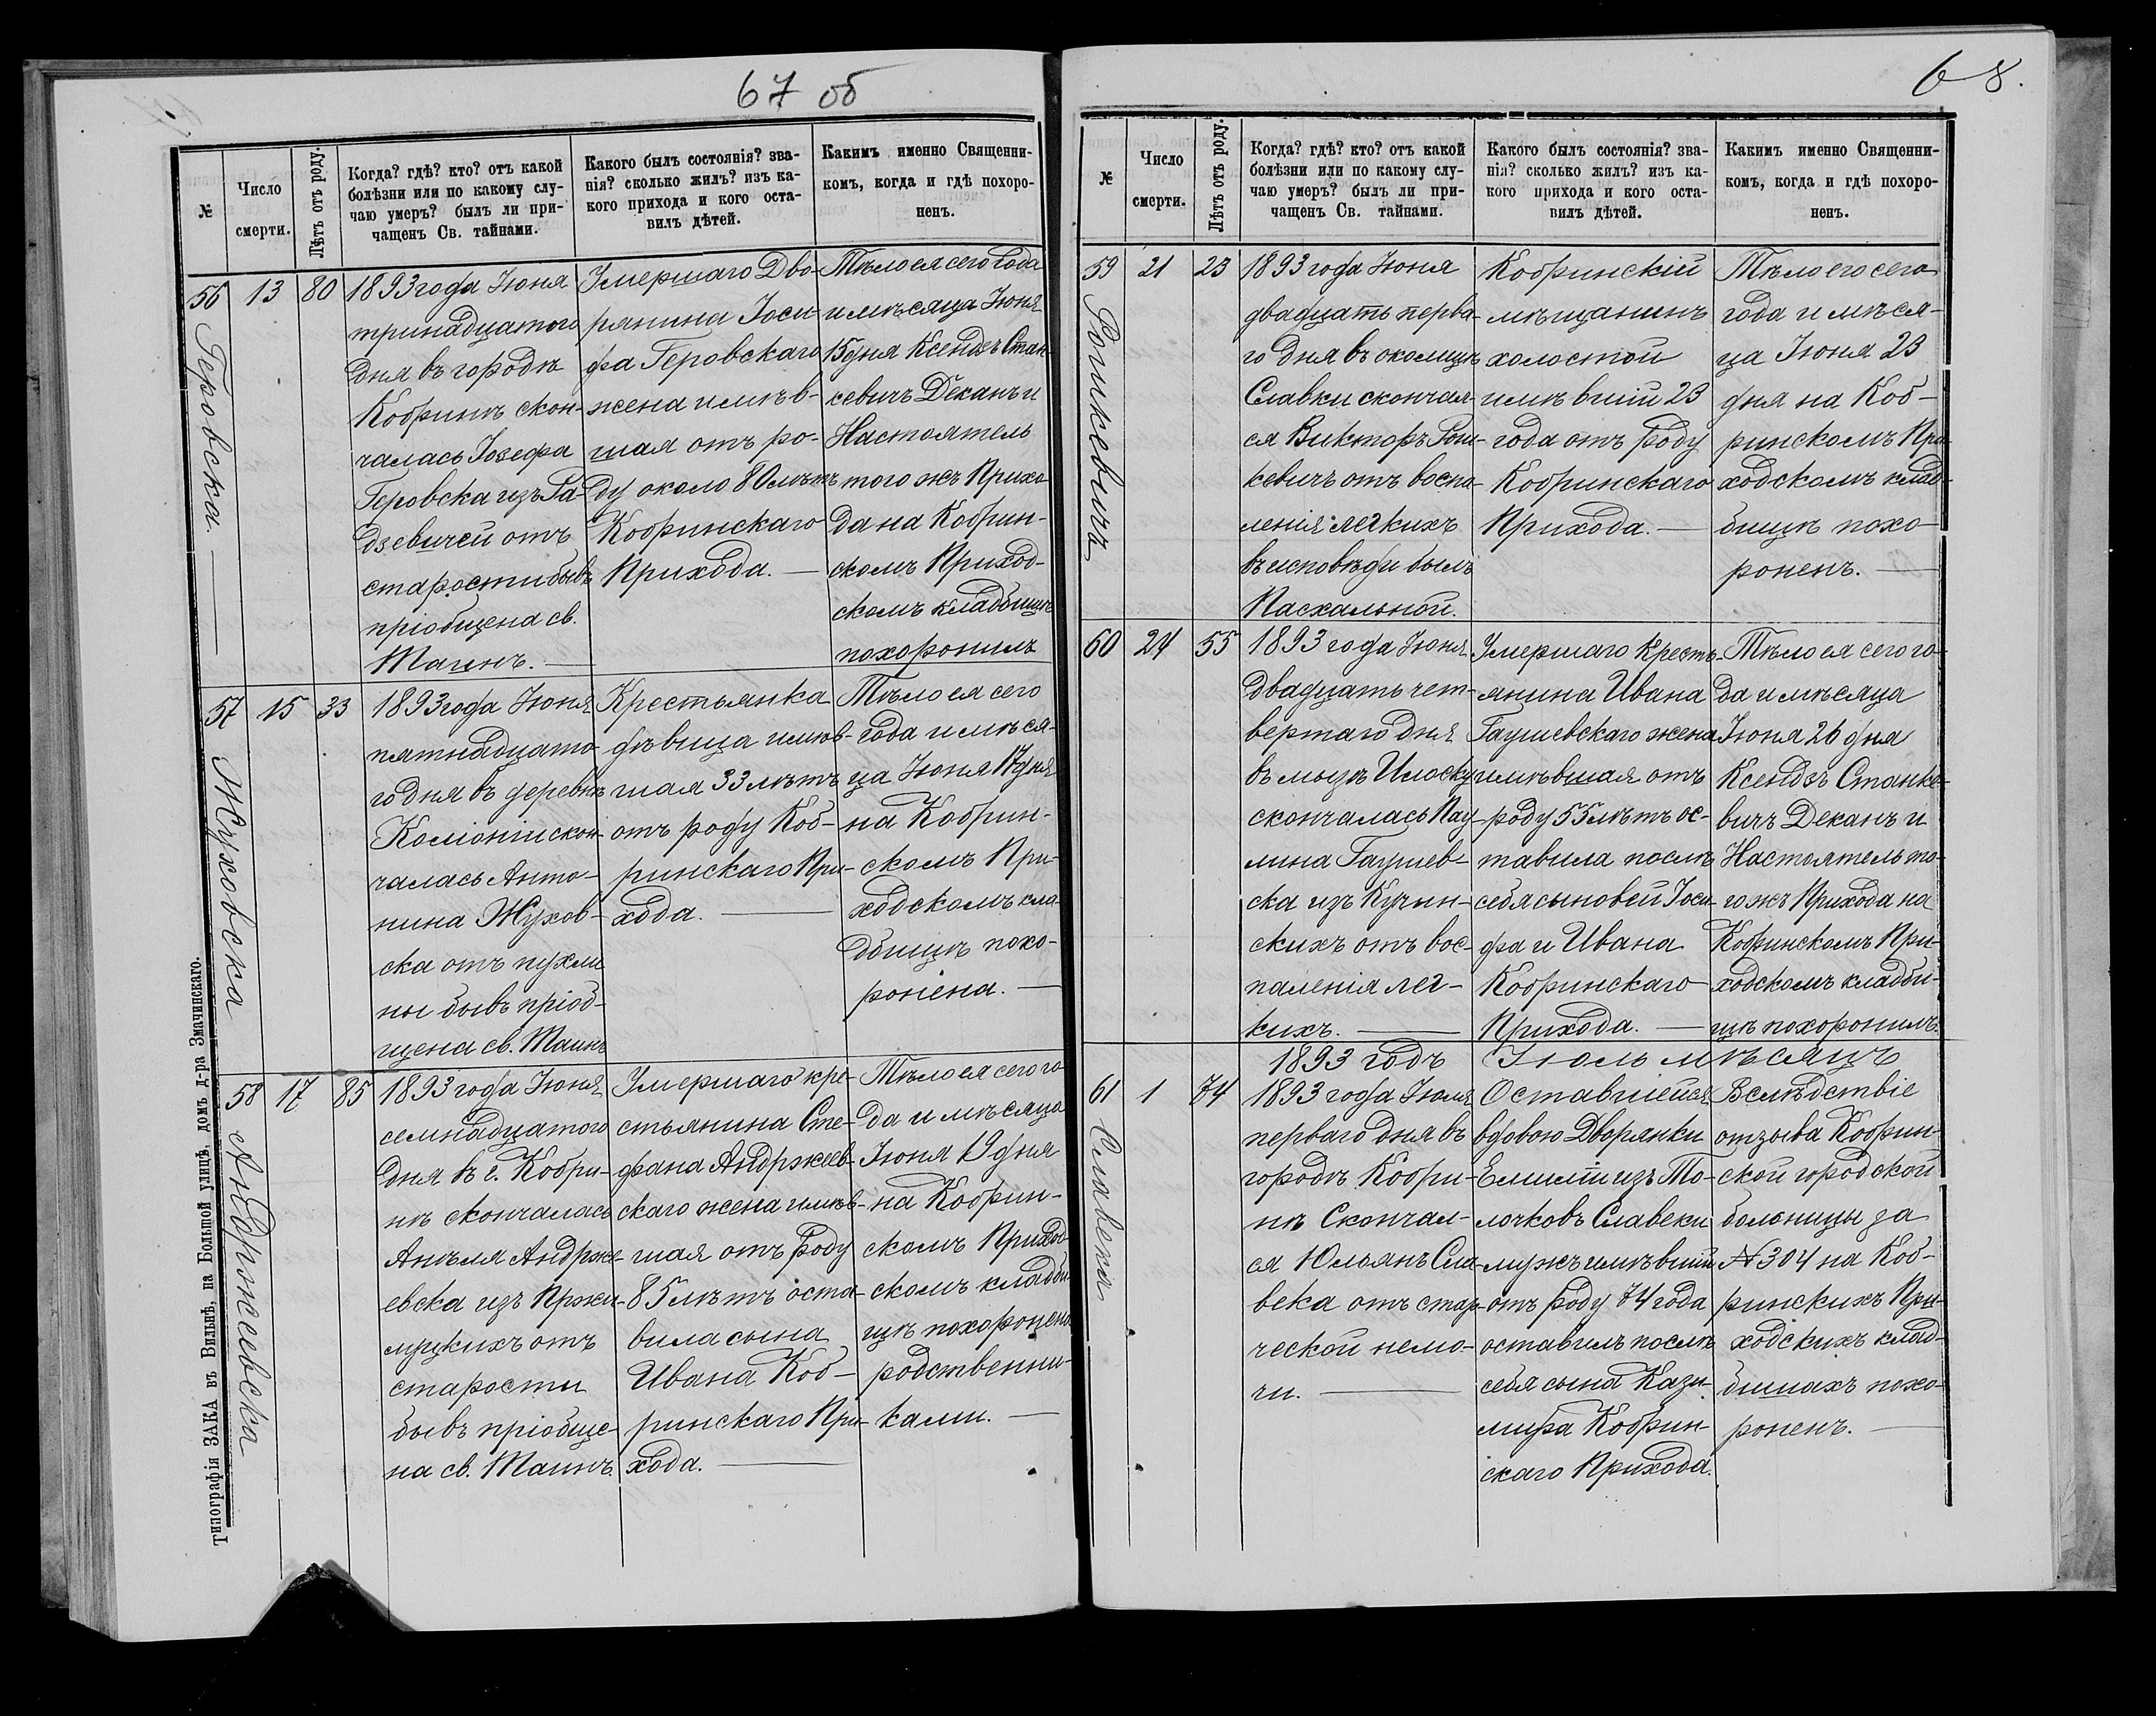 67 об
№
Число
смерти.
Лѣтъ отъ роду.
Когда? гдѣ? кто? отъ какой
болѣзни или по какому слу-
чаю умеръ? былъ ли при-
чащенъ Св. тайнами.
Какого былъ состоянія? зва-
нія? сколько жилъ? изъ ка-
кого прихода и кого оста-
вилъ дѣтей.
Какимъ именно Священни-
комъ, когда и гдѣ похоро-
ненъ.
56
Геровска.
13
80
1893 года Іюня
тринадцатого
дня въ городѣ
Кобринѣ скон-
чалась Іозефа
Геровска изъ Ра-
дзевичей отъ
старости бывъ
пріобщена св.
Таинъ.
Умершаго Дво-
рянина Іоси-
фа Геровскаго
жена имѣв-
шая отъ ро-
ду около 80 лѣтъ
Кобринскаго
Прихода.
Тѣло ея сего года
и мѣсяца Іюня
15 дня Ксендзъ Стан-
кевичъ Деканъ и
Настоятель
того жъ Прихо-
да на Кобрин-
скомъ Приход-
скомъ кладбищѣ
похоронилъ
57
Жуховска
15
33
1893 года Іюня
пятнадцато-
го дня въ деревнѣ
Колюнги скон-
чалась Анто-
нина Жухов-
ска отъ пухли
ны бывъ пріоб-
щена св. Таинъ
Крестьянка
дѣвица имѣв-
шая 33 лѣтъ
отъ роду Коб-
ринскаго При-
хода.
Тѣло ея сего
года и мѣся-
ца Іюня 17 дня
на Кобрин-
скомъ При-
ходскомъ кла-
дбищѣ похо-
ронена.
58
Андржеевска
17
85
1893 года Іюня
семнадцатого
дня въ г. Кобри-
нѣ скончалась
Анѣля Андрже-
евска изъ Пржи-
муцкихъ отъ
старости
бывъ пріобще-
на св. Таинъ.
Умершаго кре-
стьянина Сте-
фана Андржеев-
скаго жена имѣв-
шая отъ роду
85 лѣтъ оста-
вила сына
Ивана Коб-
ринскаго При-
хода.
Тѣло ея сего го-
да и мѣсяца
Іюня 19 дня
на Кобрин-
скомъ Приход-
скомъ кладби-
щѣ похоронено
родственни-
ками.
Типографія ЗАКА въ Вильнѣ, на Большой улицѣ, домъ д-ра Змачинскаго.
68.
№
Число
смерти.
Лѣтъ отъ роду.
Когда? гдѣ? кто? отъ какой
болѣзни или по какому слу-
чаю умеръ? былъ ли при-
чащенъ Св. тайнами.
Какого былъ состоянія? зва-
нія? сколько жилъ? изъ ка-
кого прихода и кого оста-
вилъ дѣтей.
Какимъ именно Священни-
комъ, когда и гдѣ похоро-
ненъ.
59
Рошкевичъ
21
23
1893 года Іюня
двадцать перва-
го дня въ околицѣ
Славки скончал-
ся Викторъ Рош-
кевичъ отъ воспа-
ленія легкихъ
въ исповѣди былъ
Пасхальной.
Кобринскій
мѣщанинъ
холостой
имѣвшій 23
года отъ роду
Кобринскаго
Прихода.
Тѣло его сего
года и мѣся-
ца Іюня 23
дня на Коб-
ринскомъ При-
ходскомъ клад-
бищѣ похо-
роненъ.
60
24
55
1893 года Іюня
двадцать чет-
вертаго дня
въ мызѣ Илоску
скончалась Пау-
лина Гаушев-
ска изъ Кучин-
скихъ отъ вос-
паленія лег-
кихъ.
Умершаго Кресть-
янина Ивана
Гаушевскаго жена
имѣвшая отъ
роду 55 лѣтъ ос-
тавила послѣ
себя сыновей Іоси-
фа и Ивана
Кобринскаго
Прихода.
Тѣло ея сего го-
да и мѣсяца
Іюня 26 дня
Ксендзъ Станке-
вичъ Деканъ и
Настоятель то-
го жъ Прихода на
Кобринскомъ При-
ходскомъ кладби-
щѣ похоронилъ.
1893 годъ Іюль мѣсяцъ
61
Славека
1
74
1893 года Іюля
перваго дня въ
городѣ Кобри-
нѣ Скончал-
ся Юльянъ Сла-
века отъ стар-
ческой немо-
чи.
Оставшейся
вдовою Дворянки
Емиліи изъ То-
лочковъ Славеки
мужъ имѣвшій
отъ роду 74 года
оставилъ послѣ
себя сына Кази-
мира Кобрин-
скаго Прихода.
Вслѣдствіе
отзыва Кобрин-
ской городской
больницы за
№ 304 на Коб-
ринскихъ При-
ходскихъ клад-
бищахъ похо-
роненъ.